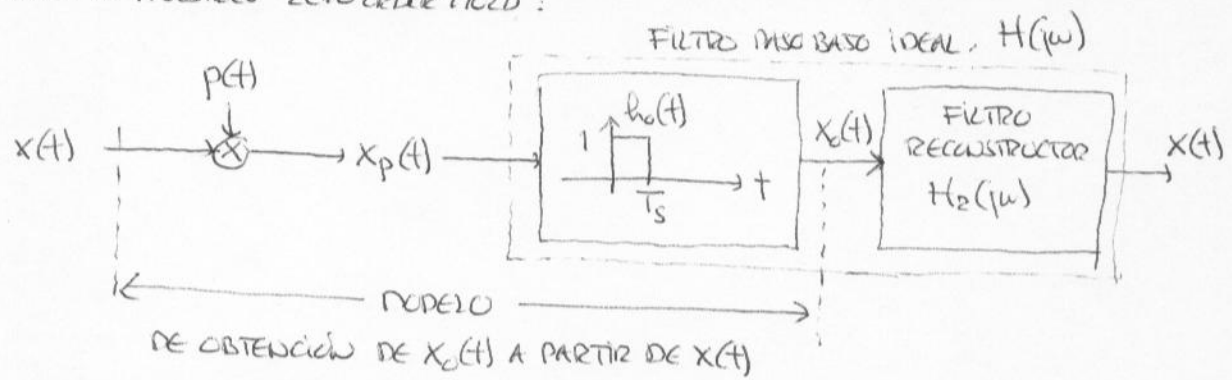 FILTRO PASO BAJO IDEAL. H(jω)
p(t)
x(t)
x
xp(t)
1
ho(t)
t
Ts
xo(t)
FILTRO
RECONSTRUCTOR
H2(jω)
x(t)
MODELO
DE OBTENCIÓN DE Xo(t) A PARTIR DE X(t)